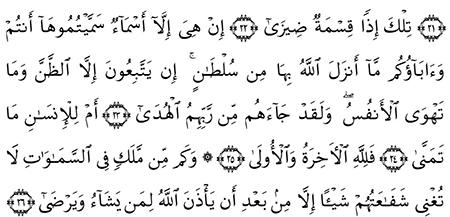 ﴿٢١﴾ تِلْكَ إِذًا قِسْمَةٌ ضِيزَىٰٓ ﴿٢٢﴾ إِنْ هِىَ إِلَّآ أَسْمَآءٌ سَمَّيْتُمُوهَآ أَنتُمْ
وَءَابَآؤُكُم مَّآ أَنزَلَ ٱللَّهُ بِهَا مِن سُلْطَـٰنٍ ۚ إِن يَتَّبِعُونَ إِلَّا ٱلظَّنَّ وَمَا
تَهْوَى ٱلْأَنفُسُ ۖ وَلَقَدْ جَآءَهُم مِّن رَّبِّهِمُ ٱلْهُدَىٰٓ ﴿٢٣﴾ أَمْ لِلْإِنسَـٰنِ مَا
تَمَنَّىٰ ﴿٢٤﴾ فَلِلَّهِ ٱلْـَٔاخِرَةُ وَٱلْأُولَىٰ ﴿٢٥﴾ ۞ وَكَم مِّن مَّلَكٍ فِى ٱلسَّمَـٰوَٰتِ لَا
تُغْنِى شَفَـٰعَتُهُمْ شَيْـًٔا إِلَّا مِنۢ بَعْدِ أَن يَأْذَنَ ٱللَّهُ لِمَن يَشَآءُ وَيَرْضَىٰٓ ﴿٢٦﴾